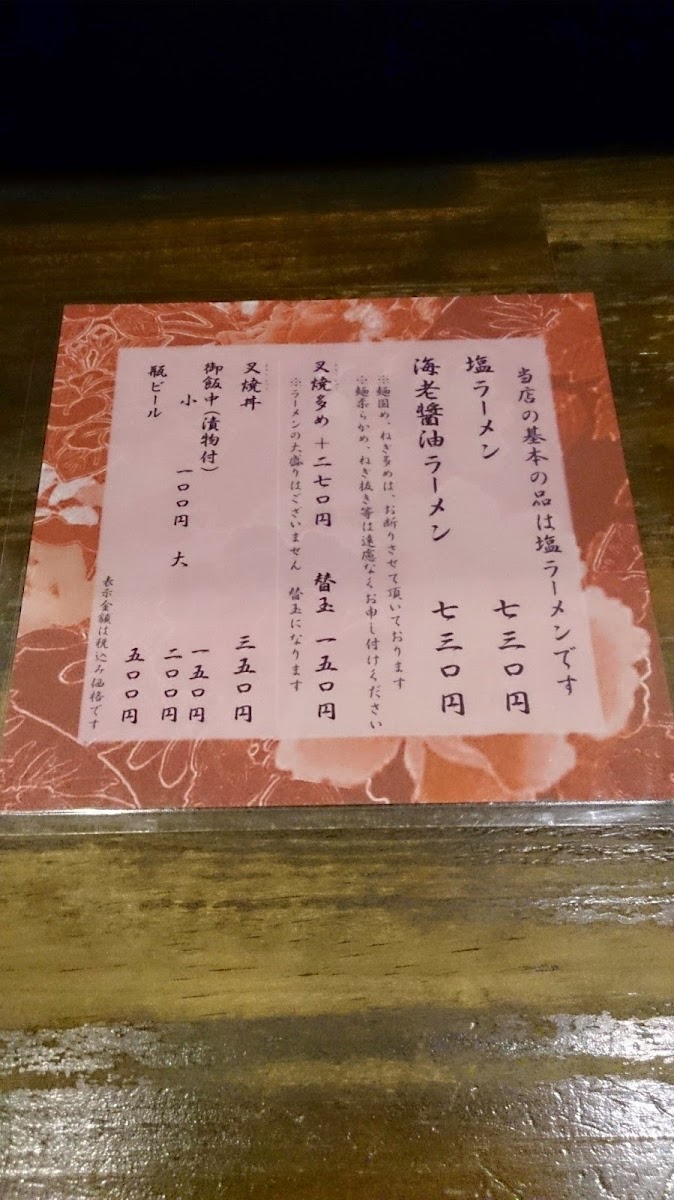 当店の基本の品は塩ラーメンです
塩ラーメン 七三〇円
海老醤油ラーメン 七三〇円
※麺固め、ねぎ多めは、お断りさせて頂いております
※麺柔らかめ、ねぎ抜き等は遠慮なくお申し付けください
叉焼多め 十二七〇円 替玉 一五〇円
※ラーメンの大盛りはございません 替玉になります
叉焼丼 三五〇円
御飯中(漬物付) 一五〇円
小 一〇〇円 大 二〇〇円
瓶ビール 五〇〇円
表示金額は税込み価格です